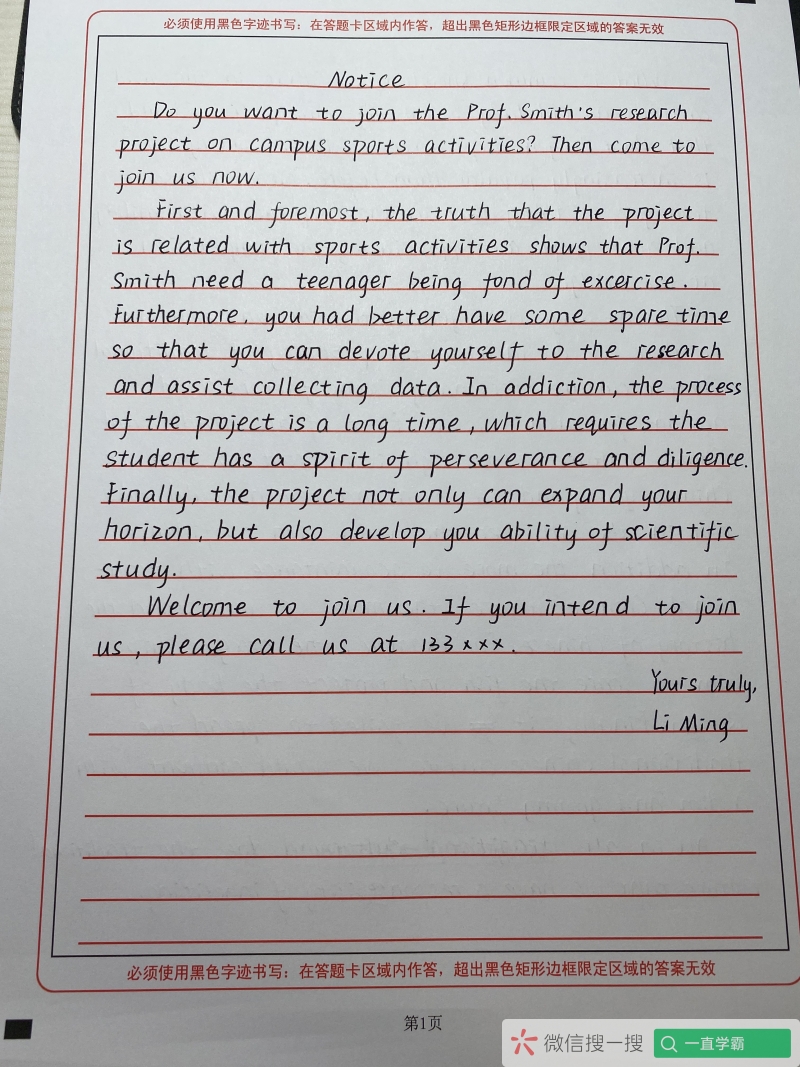 必须使用黑色字迹书写：在答题卡区域内作答，超出黑色矩形边框限定区域的答案无效
Notice
Do you want to join the Prof. Smith's research
project on campus sports activities? Then come to
join us now.
First and foremost, the truth that the project
is related with sports activities shows that Prof.
Smith need a teenager being fond of excercise.
Furthermore, you had better have some spare time
so that you can devote yourself to the research
and assist collecting data. In addiction, the process
of the project is a long time, which requires the
student has a spirit of perseverance and diligence.
Finally, the project not only can expand your
horizon, but also develop you ability of scientific
study.
Welcome to join us. If you intend to join
us, please call us at 133×××.
Yours truly,
Li Ming
必须使用黑色字迹书写：在答题卡区域内作答，超出黑色矩形边框限定区域的答案无效
第1页
微信搜一搜
一直学霸